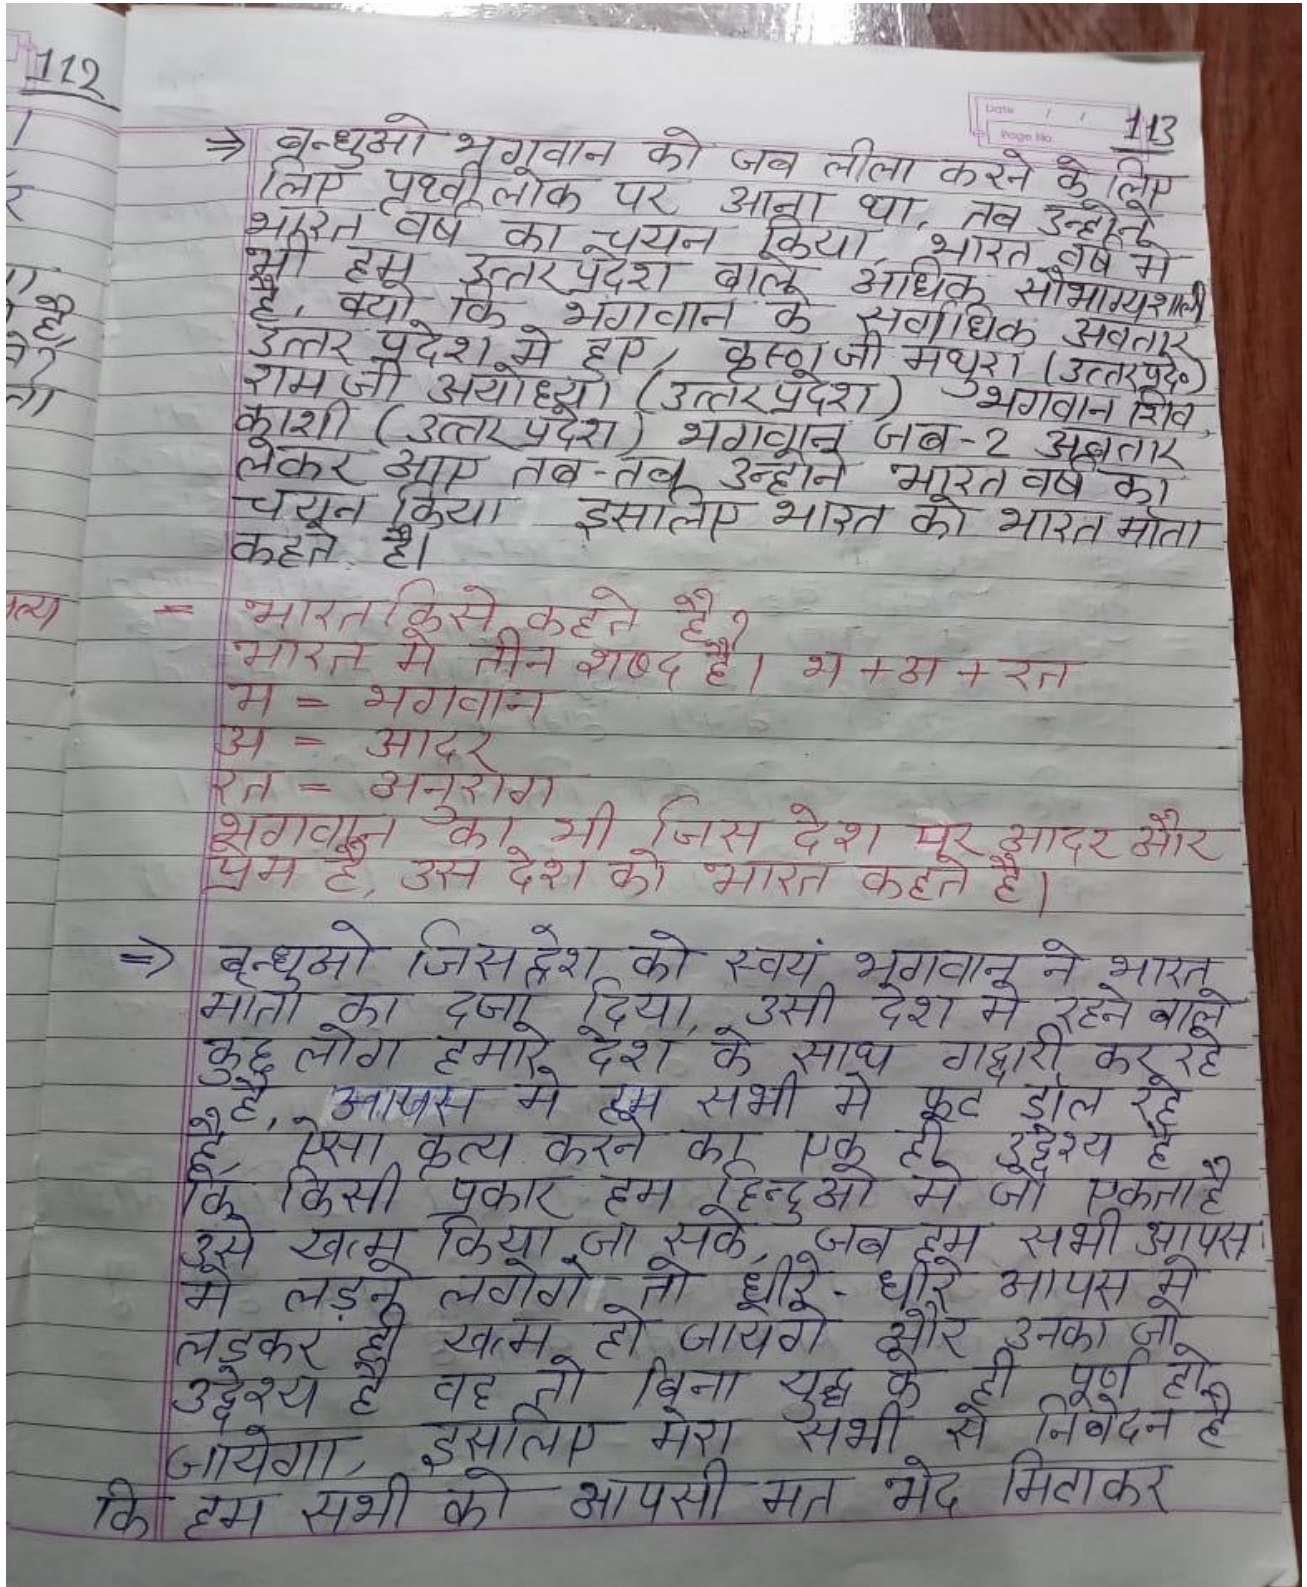 112
113
Date / /
Page No.
⇒ बन्धुओ भगवान को जब लीला करने के लिए
लिए पृथ्वीलोक पर आना था, तब उन्होने
भारत वर्ष का चयन किया, भारत वर्ष मे
भी हम उत्तरप्रदेश बाले अधिक सौभाग्यशाली
है, क्यो कि भगवान के सर्वाधिक अवतार
उत्तर प्रदेश मे हुए, कृष्ण जी मथुरा (उत्तरप्रदे०)
राम जी अयोध्या (उत्तरप्रदेश) भगवान शिव
काशी (उत्तर प्रदेश) भगवान जब-2 अवतार
लेकर आए तब-तब उन्होने भारत वर्ष का
चयन किया इसलिए भारत को भारत माता
कहते है।
= भारत किसे कहते है?
भारत मे तीन शब्द है। भ + अ + रत
भ = भगवान
अ = आदर
रत = अनुराग
भगवान का भी जिस देश पर आदर और
प्रेम है, उस देश को भारत कहते है।
⇒ बन्धुओ जिस देश को स्वयं भगवान ने भारत
माता का दर्जा दिया, उसी देश मे रहने बाले
कुछ लोग हमारे देश के साथ गद्दारी कर रहे
है, आपस मे हम सभी मे फूट डाल रहे
है, ऐसा कृत्य करने का एक ही उद्देश्य है
कि किसी प्रकार हम हिन्दुओ मे जो एकता है
उसे खत्म किया जा सके, जब हम सभी आपस
मे लड़ने लगेगे तो धीरे-धीरे आपस मे
लड़कर ही खत्म हो जायेगे और उनका जो
उद्देश्य है वह तो बिना युद्ध के ही पूर्ण हो
जायेगा, इसलिए मेरा सभी से निवेदन है
कि हम सभी को आपसी मत भेद मिटाकर